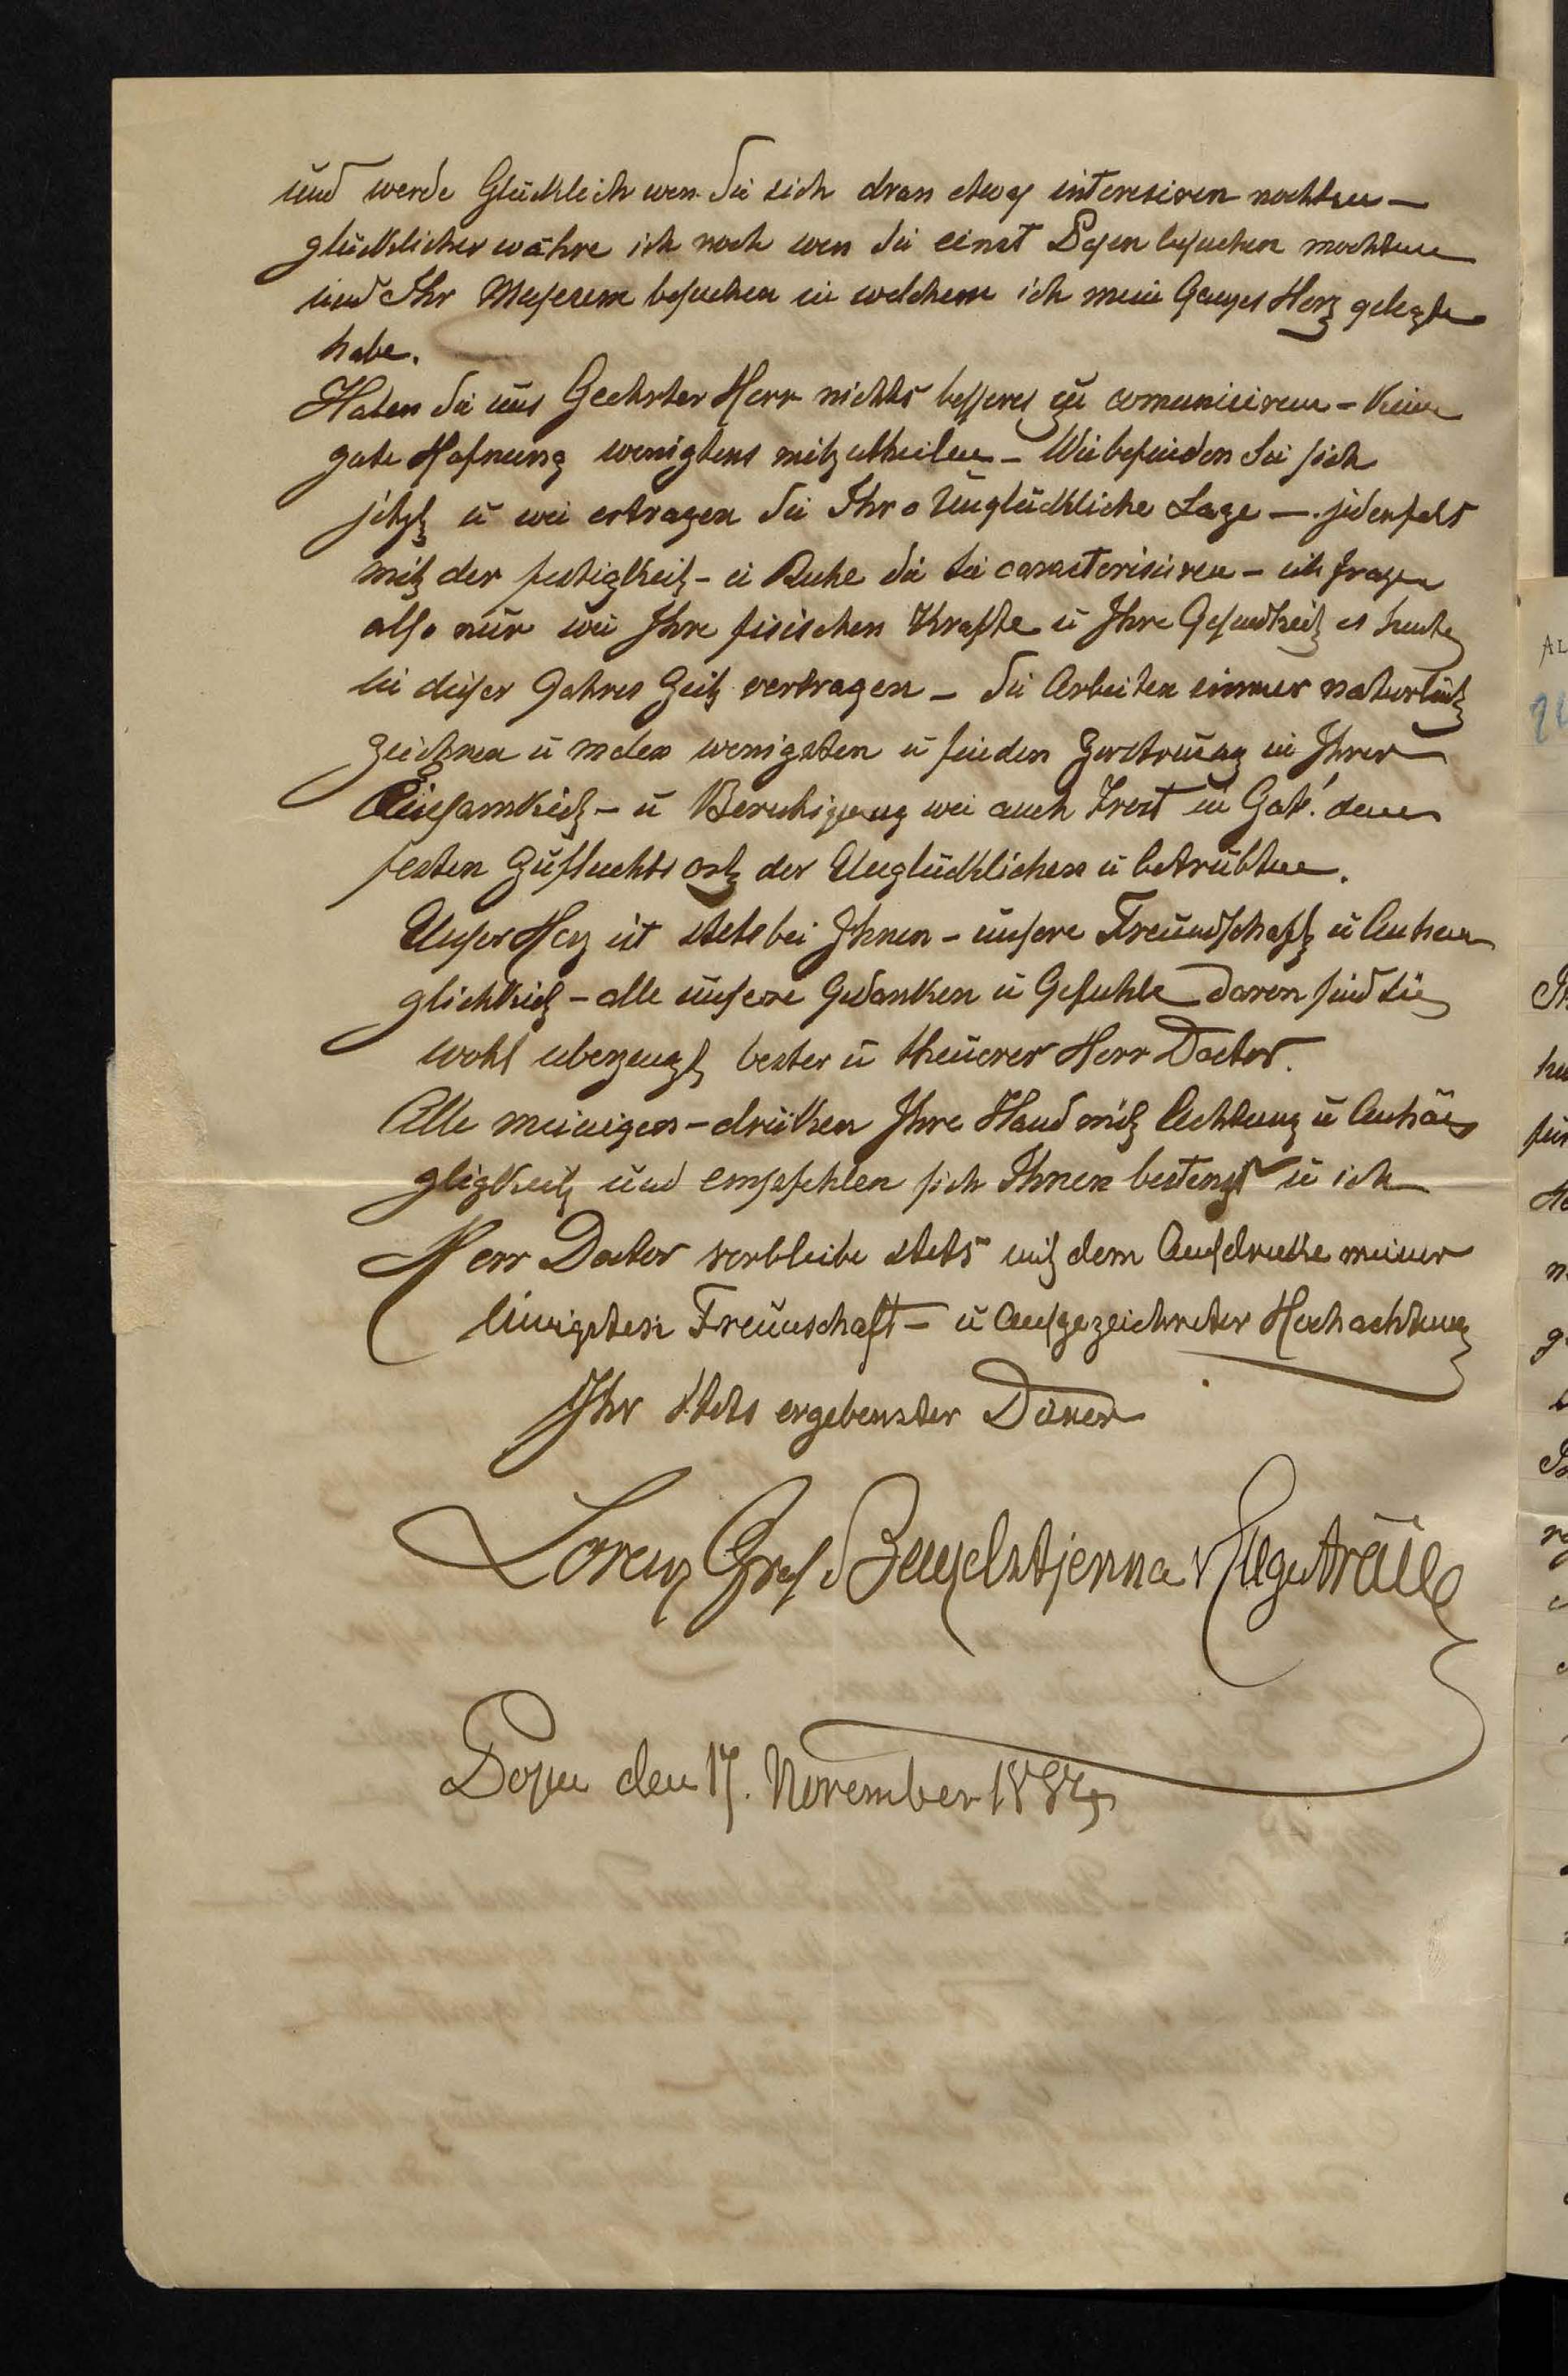 und werde Glücklich wen Sie sich dran etwas interesiren mochten —
glücklicher währe ich noch wen Sie einst Posen besuchen mochten
und Ihr Museum besuchen in welchem ich mein Ganzes Herz gelegt
habe.
Haben Sie uns Geehrter Herr nichts besseres zu comuniciren – Keine
gute Hofnung wenigtens mitzutheilen – Wie befinden Sie sich
jetzt u wie ertragen Sie Ihre Unglückliche Lage —. jedenfals
mit der festigkeit – u Ruhe die Sie caracterisiren – ich frage
also nur wie Ihre fisischen Krafte u Ihre Gesundheit es heute
in dieser Jahres Zeit vertragen – Sie Arbeiten immer naturlich
zeichnen u malen wenigsten u finden Zerstreuung in Ihrer
Einsamkeit – u Beruhigung wie auch Trost in Gott! dem
festen Zufluchts ort der Unglücklichen u betrubten.
Unser Herz ist stets bei Ihnen – unsere Freundschaft u Anhen
glichkeit – alle unsere Gedanken u Gefuhle davon sind Sie
wohl uberzeugt bester u theuerer Herr Doctor.
Alle meinigen – drücken Ihre Hand mit Achtung u Anhän
gligkeit und empfehlen sich Ihnen bestens u ich
Herr Doctor verbleibe stets mit dem Ausdrucke meiner
innigsten Freunschaft – u ausgezeichneter Hochachtung
Ihr stets ergebenster Diener
Lorenz Graf Benzelstjerna v Engeström
Posen den 17. November 1884